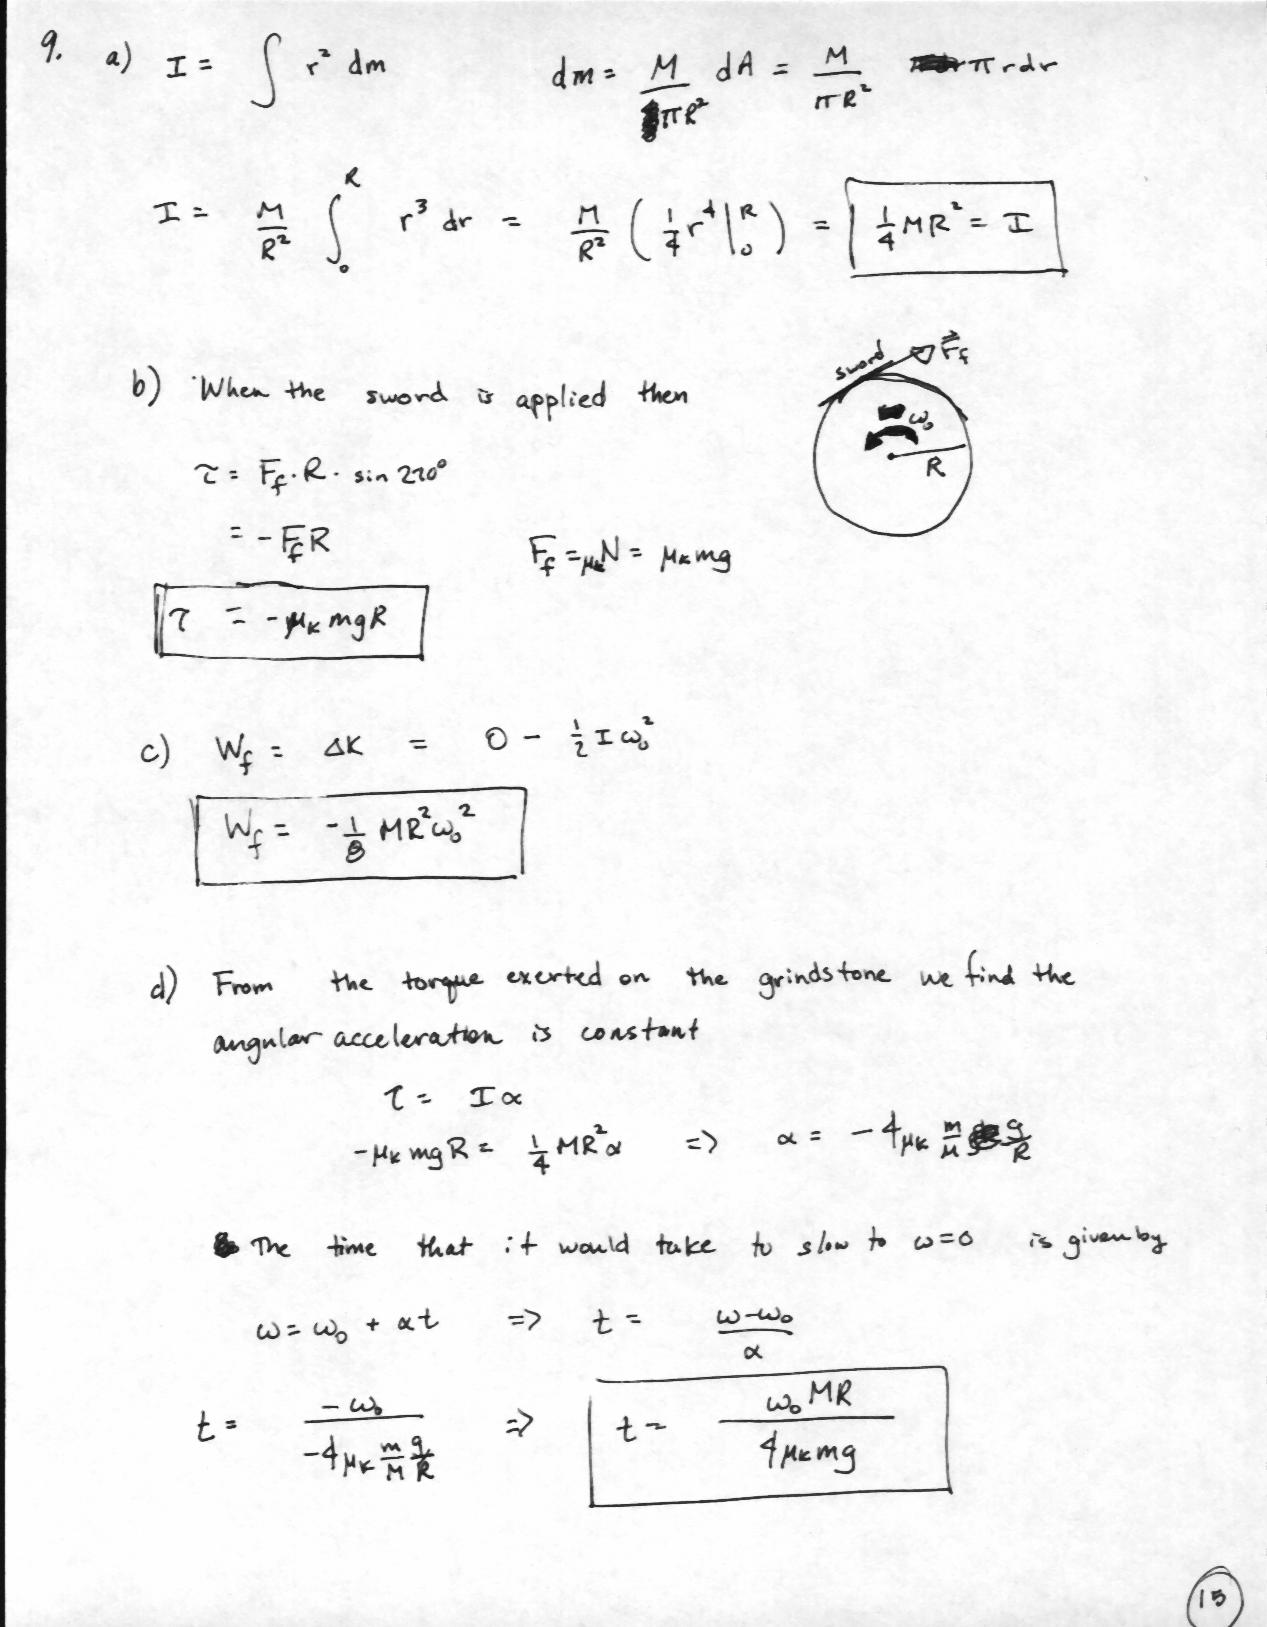 9. a) I = ∫ r² dm dm = M/πR² dA = M/πR² π r dr
I = M/R² ∫₀ᴿ r³ dr = M/R² ( 1/4 r⁴ |₀ᴿ ) = 1/4 MR² = I
sword F⃗f
ω₀
R
b) When the sword is applied then
τ = Ff · R · sin 270°
= - Ff R Ff = μₖN = μₖmg
τ = - μₖ mg R
c) Wf = ΔK = 0 - 1/2 I ω₀²
Wf = - 1/8 MR²ω₀²
d) From the torque exerted on the grindstone we find the
angular acceleration is constant
τ = I α
-μₖ mg R = 1/4 MR²α => α = - 4μₖ m/M g/R
The time that it would take to slow to ω=0 is given by
ω = ω₀ + αt => t = (ω-ω₀)/α
t = -ω₀/(-4μₖ m/M g/R) => t = ω₀MR/(4μₖmg)
15